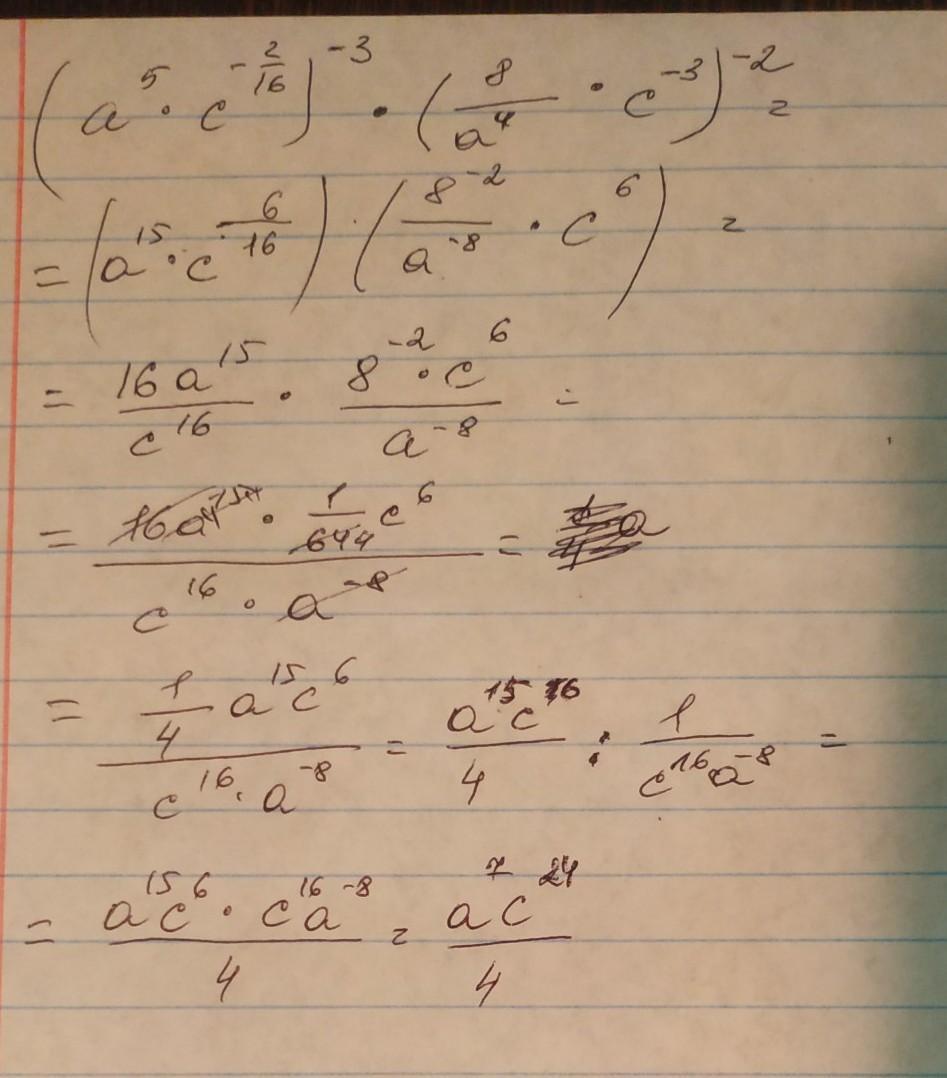 (a^5 · c^{-2/16})^{-3} · (8/a^4 · c^{-3})^{-2} =
= (a^{15} · c^{-6/16}) · (8^{-2}/a^{-8} · c^6) =
= 16a^{15}/c^{16} · 8^{-2} · c^6/a^{-8} =
= · 1/64 c^6/c^{16} · a^{-8} = a
= 1/4 a^{15} c^6/c^{16} · a^{-8} = a^{15} c^{16}/4 : 1/c^{16} · a^{-8} =
= a^{15} c^6 · c^{16} a^{-8}/4 = a^7 c^{24}/4